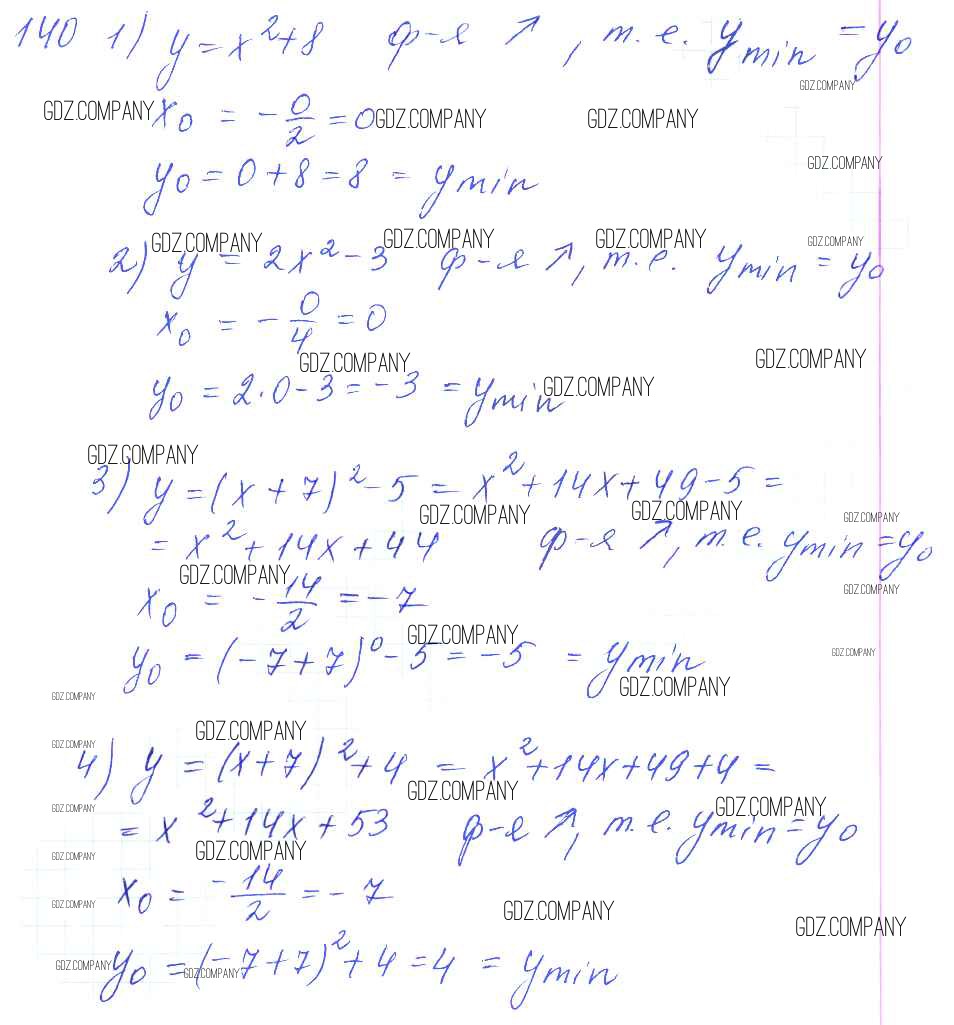 140 1) y = x²+8 ф-я ↗, т.е. y min = y₀
GDZ.COMPANY
GDZ.COMPANY x₀ = -0/2 = 0 GDZ.COMPANY GDZ.COMPANY
GDZ.COMPANY
y₀ = 0+8 = 8 = y min
GDZ.COMPANY GDZ.COMPANY GDZ.COMPANY GDZ.COMPANY
2) y = 2x² - 3 ф-я ↗, т.е. y min = y₀
x₀ = -0/4 = 0
GDZ.COMPANY GDZ.COMPANY
y₀ = 2·0-3 = -3 = y min GDZ.COMPANY
GDZ.COMPANY
3) y = (x+7)² - 5 = x² + 14x + 49 - 5 =
GDZ.COMPANY GDZ.COMPANY GDZ.COMPANY
= x² + 14x + 44 ф-я ↗, т.е. y min = y₀
GDZ.COMPANY GDZ.COMPANY
x₀ = -14/2 = -7
GDZ.COMPANY
y₀ = (-7+7)⁰ - 5 = -5 = y min
GDZ.COMPANY
GDZ.COMPANY GDZ.COMPANY
GDZ.COMPANY
GDZ.COMPANY
4) y = (x+7)² + 4 = x² + 14x + 49 + 4 =
GDZ.COMPANY
GDZ.COMPANY GDZ.COMPANY
= x² + 14x + 53 ф-я ↗, т.е. y min = y₀
GDZ.COMPANY GDZ.COMPANY
x₀ = -14/2 = -7
GDZ.COMPANY GDZ.COMPANY GDZ.COMPANY
GDZ.COMPANY y₀ = (-7+7)² + 4 = 4 = y min
GDZ.COMPANY